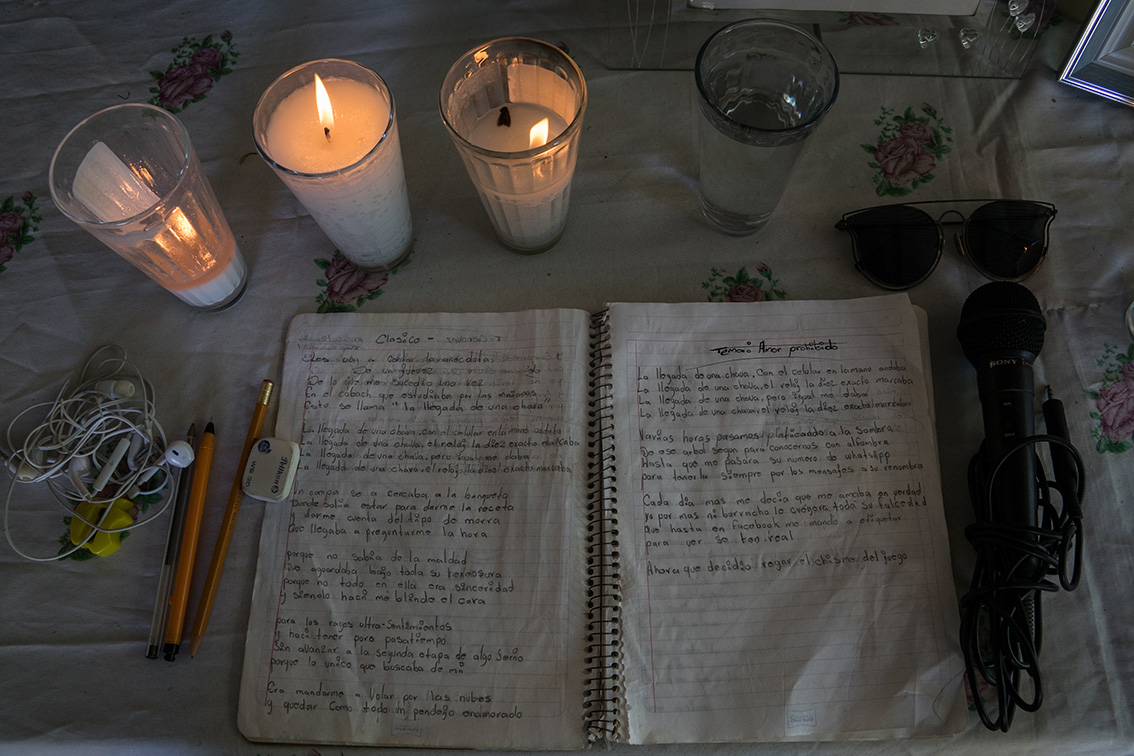 Clasico -
De un juevez
De lo que me sucedio una vez
En el cobach que estudiaba por las mañanas
Esto se llama "la llegada de una chava"
La llegada de una chava, con el celular en la mano andaba
La llegada de una chava, el reloj la diez exacta marcaba
La llegada de una chava, pero igual me daba
La llegada de una chava, el reloj la diez exacta marcaba
se a cercaba a la banqueta
Donde solia estar para darme la receta
y darme cuenta del tipo de morra
Que llegaba a preguntarme la hora
porque no sabia de la maldad
Que aguardaba bajo toda su hermosura
porque no todo en ella era sinceridad
y sienolo haci me blinde el cora
para los rayos ultra-sentimientos
y haci tener puro pasatiempo
Sin avanzar a la segunda etapa de algo serio
porque lo unico que buscaba de mi
Era mandarme a volar por las nubes
y quedar como todo un pendejo enamorado
Tema: Amor prohibido
La llegada de una chava, Con el celular en la mano andaba
La llegada de una chava, el reloj la diez exacta marcaba
La llegada de una chava, pero igual me daba
La llegada de una chava, el reloj la diez exacta marcaba
Varias horas pasamos platicando a la sombra
De ese arbol segun para conocernos con alfombra
Hasta que me pasara su numero de whatsapp
para tenerla siempre por los mensajes a su renombra
Cada dia mas me decia que me amaba en verdad
yo por mas ni borracho le creyera toda su falsedad
Que hasta en facebook me mando a etiquetar
para ver se tan real
Ahora que decidio regar el chisme del juego
SONY